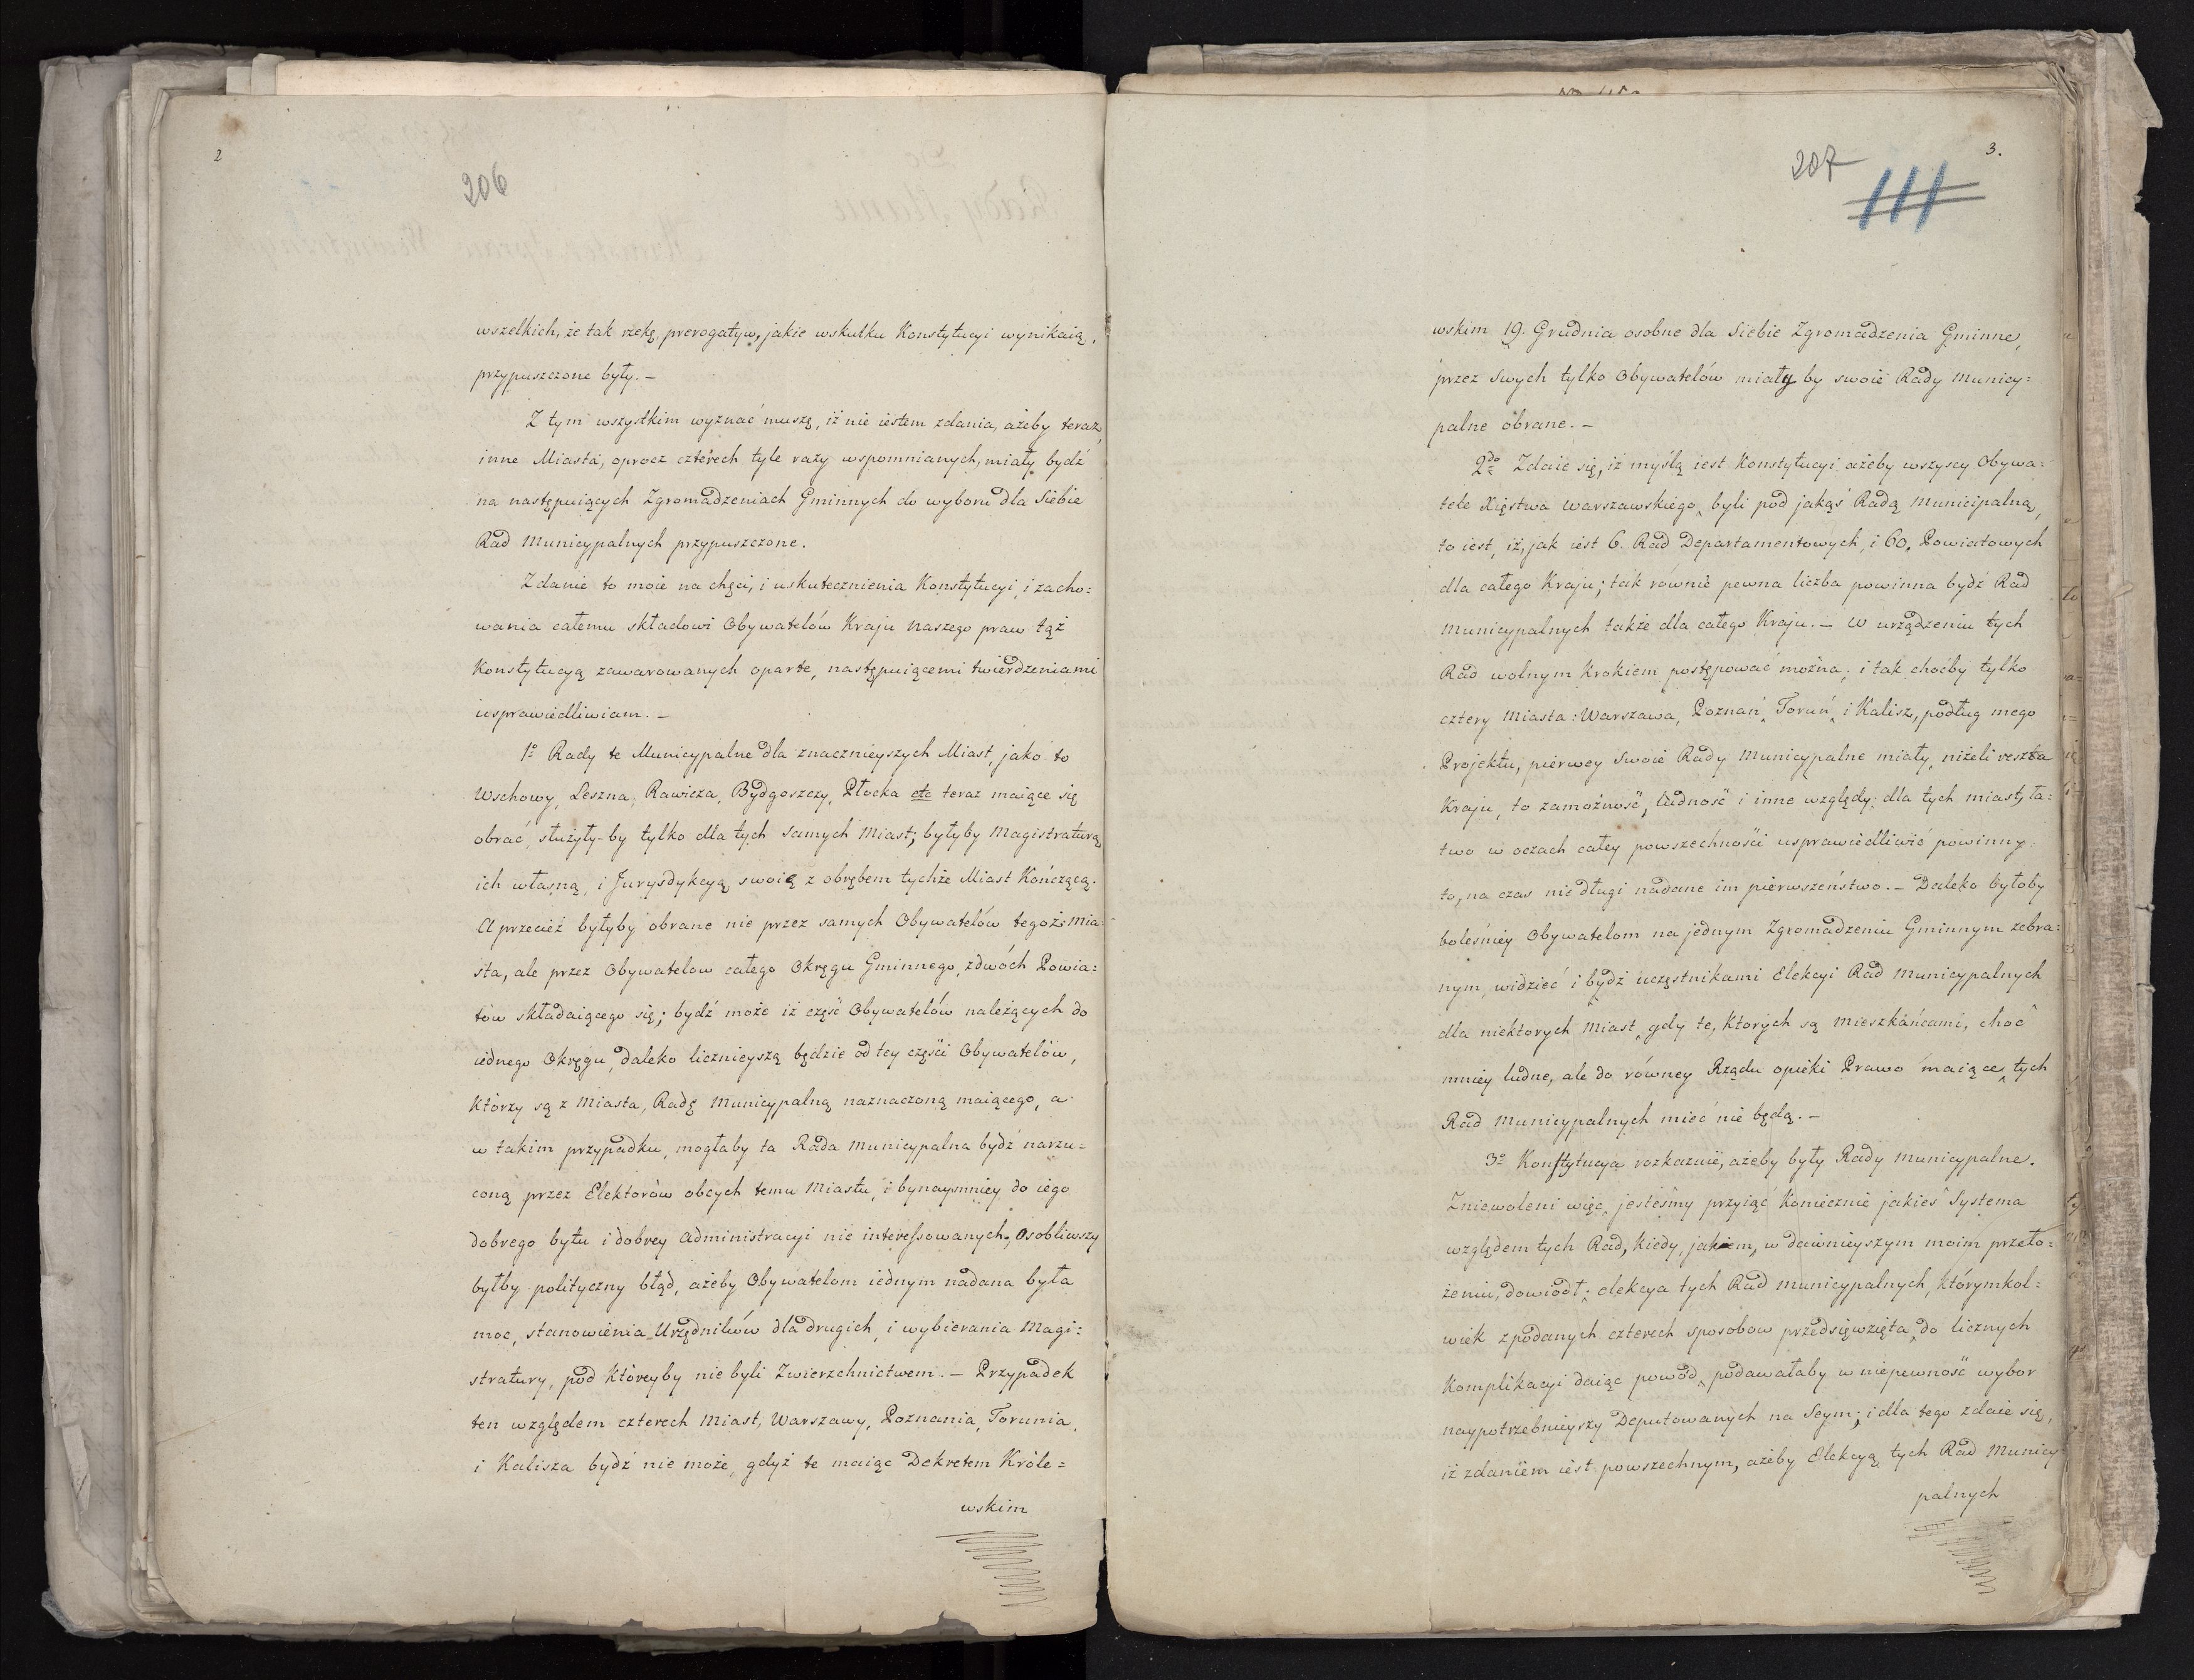 2
206
wszelkich, że tak rzekę, prerogatyw, jakie wskutku Konstytucyi wynikaią,
przypuszczone były. –
Z tym wszystkim wyznać muszę, iż nie iestem zdania, ażeby teraz,
inne Miasta, oprocz czterech tyle razy wspomnianych, miały bydź
na następuiących Zgromadzeniach Gminnych do wyboru dla Siebie
Rad Municypalnych przypuszczone.
Zdanie to moie na chęci, i uskutecznienia Konstytucyi, i zacho=
wania całemu składowi Obywatelów Kraju Naszego praw tąż
Konstytucyą zawarowanych oparte, następuiącemi twierdzeniami
usprawiedliwiam. –
1º Rady te Municypalne dla znacznieyszych Miast, jako to
Wschowy, Leszna, Rawicza, Bydgoszczy, Płocka etc teraz maiące się
obrać, służyły-by tylko dla tych samych Miast; byłyby Magistraturą
ich własną, i Jurysdykcyą swoią z obrębem tychże Miast Kończącą.
A przecież byłyby obrane nie przez samych Obywatelów tegoż Mia=
sta, ale przez Obywatelow całego Okręgu Gminnego, z dwóch Powia=
tów składaiącego się; bydź może iż część Obywatelów należących do
iednego Okręgu, daleko licznieyszą będzie od tey części Obywatelów,
Którzy są z Miasta, Radę Municypalną naznaczoną maiącego, a
w takim przypadku, mogłaby ta Rada Municypalna bydź narzu=
coną przez Elektorów obcych temu Miastu, i bynaymniey do iego
dobrego bytu i dobrey Administracyi nie interessowanych, Osobliwszy
byłby polityczny błąd, ażeby Obywatelom iednym nadana była
moc, stanowienia Urzędników dla drugich, i wybierania Magi=
stratury, pod Któreyby nie byli Zwierzchnictwem. – Przypadek
ten względem czterech Miast, Warszawy, Poznania, Torunia,
i Kalisza bydź nie może, gdyż te maiąc Dekretem Króle=
wskim
3.
207
111
wskim 19. Grudnia osobne dla Siebie Zgromadzenia Gminne,
przez Swych tylko Obywatelów miały by swoie Rady Municy=
palne obrane. –
2do Zdaie się, iż myślą iest Konstytucyi ażeby wszyscy Obywa=
tele Xięstwa Warszawskiego, byli pod jakąś Radą Municipalną,
to iest, iż, jak iest 6. Rad Departamentowych, i 60. Powiatowych
dla całego Kraju; tak równie pewna liczba powinna bydź Rad
Municypalnych także dla całego Kraju. – W urządzeniu tych
Rad wolnym Krokiem postępować można; i tak choćby tylko
cztery Miasta: Warszawa, Poznań, Toruń, i Kalisz, podług mego
Projektu, pierwey Swoie Rady Municypalne miały, niżeli reszta
Kraju, to zamożność, ludność i inne względy dla tych miast, ła=
two w oczach całey powszechności usprawiedliwić powinny
to, na czas nie długi nadane im pierwszeństwo. – Daleko byłoby
boleśniey Obywatelom na jednym Zgromadzeniu Gminnym zebra=
nym, widzieć i bydź uczęstnikami Elekcyi Rad Municypalnych
dla niektorych Miast, gdy te, Ktorych są Mieszkańcami, choć
mniey ludne, ale do równey Rządu opieki Prawo maiące, tych
Rad Municypalnych mieć nie będą. –
3º Konstytucya rozkazuie, ażeby były Rady Municypalne.
Zniewoleni więc, jesteśmy przyiąć Koniecznie jakieś Systema
względem tych Rad, Kiedy, jakiem, w dawnieyszym moim przeło=
żeniu, dowiodł, elekcya tych Rad Municypalnych, Którymkol=
wiek z podanych czterech sposobow przedsięwzięta, do licznych
Komplikacyi daiąc powód, podawałaby w niepewność wybor
naypotrzebnieyszy Deputowanych na Seym; i dla tego zdaie się,
iż zdaniem iest powszechnym, ażeby Elekcyą tych Rad Municy
palnych